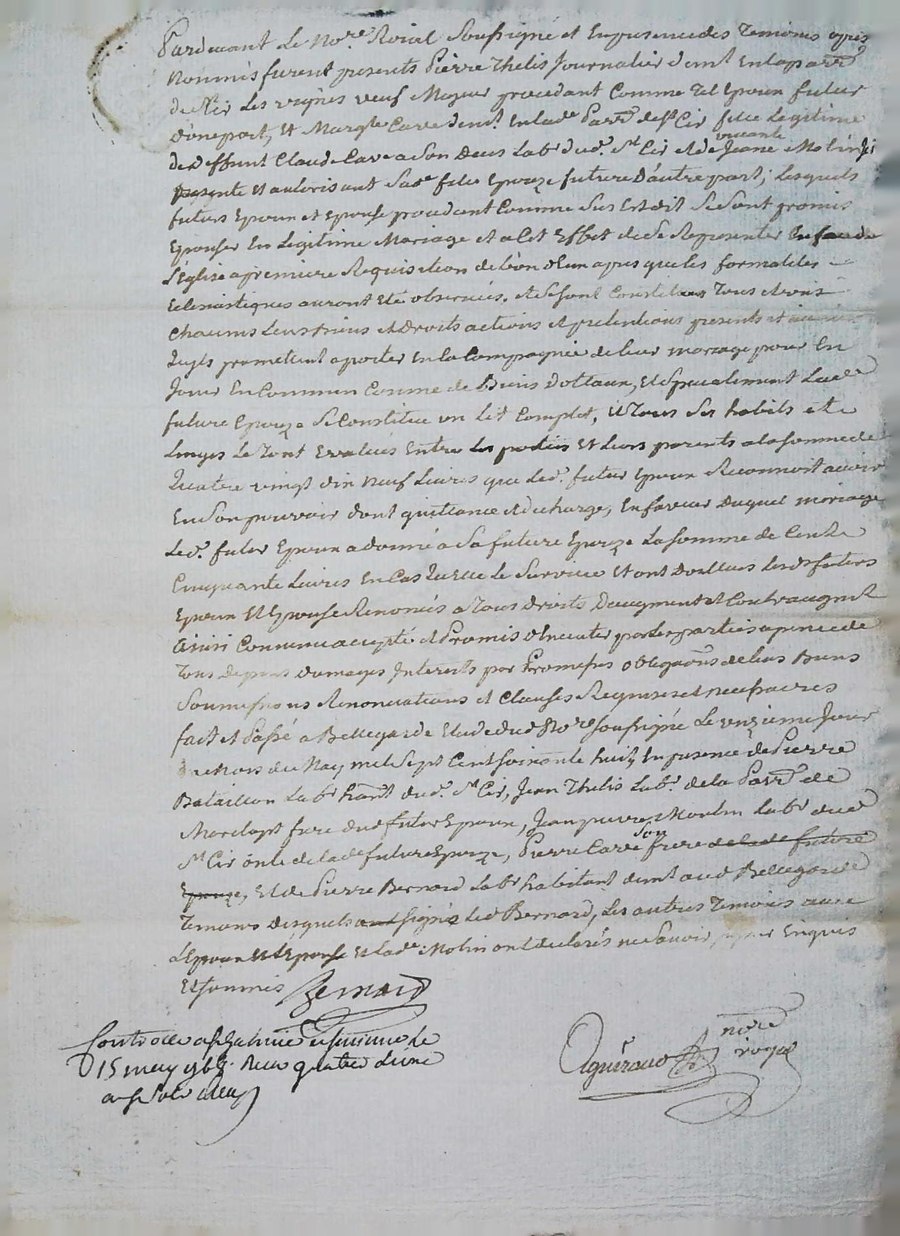 Pardevant Le No.re Roial Soussigné et En presence des Temoins après
Nommés furent presents Pierre Thelis Journalier demt En la parr.
de St Cir Les vignes veuf Majeur procedant Comme Tel Epoux futur
d'une part, Et Margte Carre demt. En lade. Parr. de St Cir fille Legitime
de deffunt Claude Carre a Son Deces Labr. dud. St Cir et de vivante Jeane Molin Ici
presente Et autorisant Sade. fille Epouze future D'autre part; Lesquels
futurs Epoux et Epouse procedant Comme Sus Est dit Se Sont promis
Epouser En Legitime Mariage et a Cet Effet de Se Representer En face de
L'Eglise a premiere Requisition de L'un d'Eux apres que les formalités
Eclesiastiques auront Eté observées, et Se Sont Constitués Tous et uns
Chacuns Leurs biens et Droits actions et pretentions presents et
promettent aporter En la Compagnie de leur mariage pour En
Jouir En Commun Comme de Biens Dottaux, Et Specialement Lade.
future Epouze Se Constitue un Lit Complet, Et Tous Ses habits et
Linges Le Tout Evalués Entre Les parties Et Leurs parents a la Somme de
Quatre vingt dix Neuf Livres que Led. futur Epoux Reconnoit avoir
En Son pouvoir dont quittance et decharge, En faveur Duquel mariage
Led. futur Epoux a donné a Sa future Epouze La Somme de Cent
Cinquante Livres En Cas Et ont D'ailleurs Lesds. futurs
Epoux Et Epouse Renoncés a Tous Droits D'augment et Contreaugmt
Ainsi Convenu accepté et Promis Executer par Les parties a peine de
Tous depens domages Interets par Promesses obligaons de leurs Biens
Soumissions Renonciations et Clauses Requises et necessaires
fait et Passé a Bellegarde Etude dud Nore Soussigné Le onzieme Jour
du Mois de May mil Sept Cent Soixante huit, En presence de Pierre
Bataillon Labr. habt. dud. St Cir, Jean Thelis Labr. de la Parr. de
Marclopt frere dud futur Epoux, Jean pierre Moulin Labr. dud
St Cir oncle de lade future Epouze, Pierre Carre Son frere de lade future
Epouze, Et de Pierre Bernard Labr habitant demt aud Bellegarde
Temoins Desquels a Signé Led Bernard, Les autres Temoins avec
L'Epoux Et L'Epouse Et Lade. Molin ont declarés ne Savoir signer Enquis
Et Sommés Bernard
Controllé a St Galmier
15 may 1768. Reçu quatre Livre
nore
royal